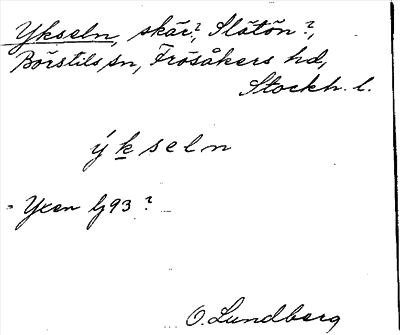 Ykseln, skär?, Slätön?,
Börstils sn, Frösåkers hd,
Stockh. l.
ýkseln
Yxen G93?
O. Lundberg